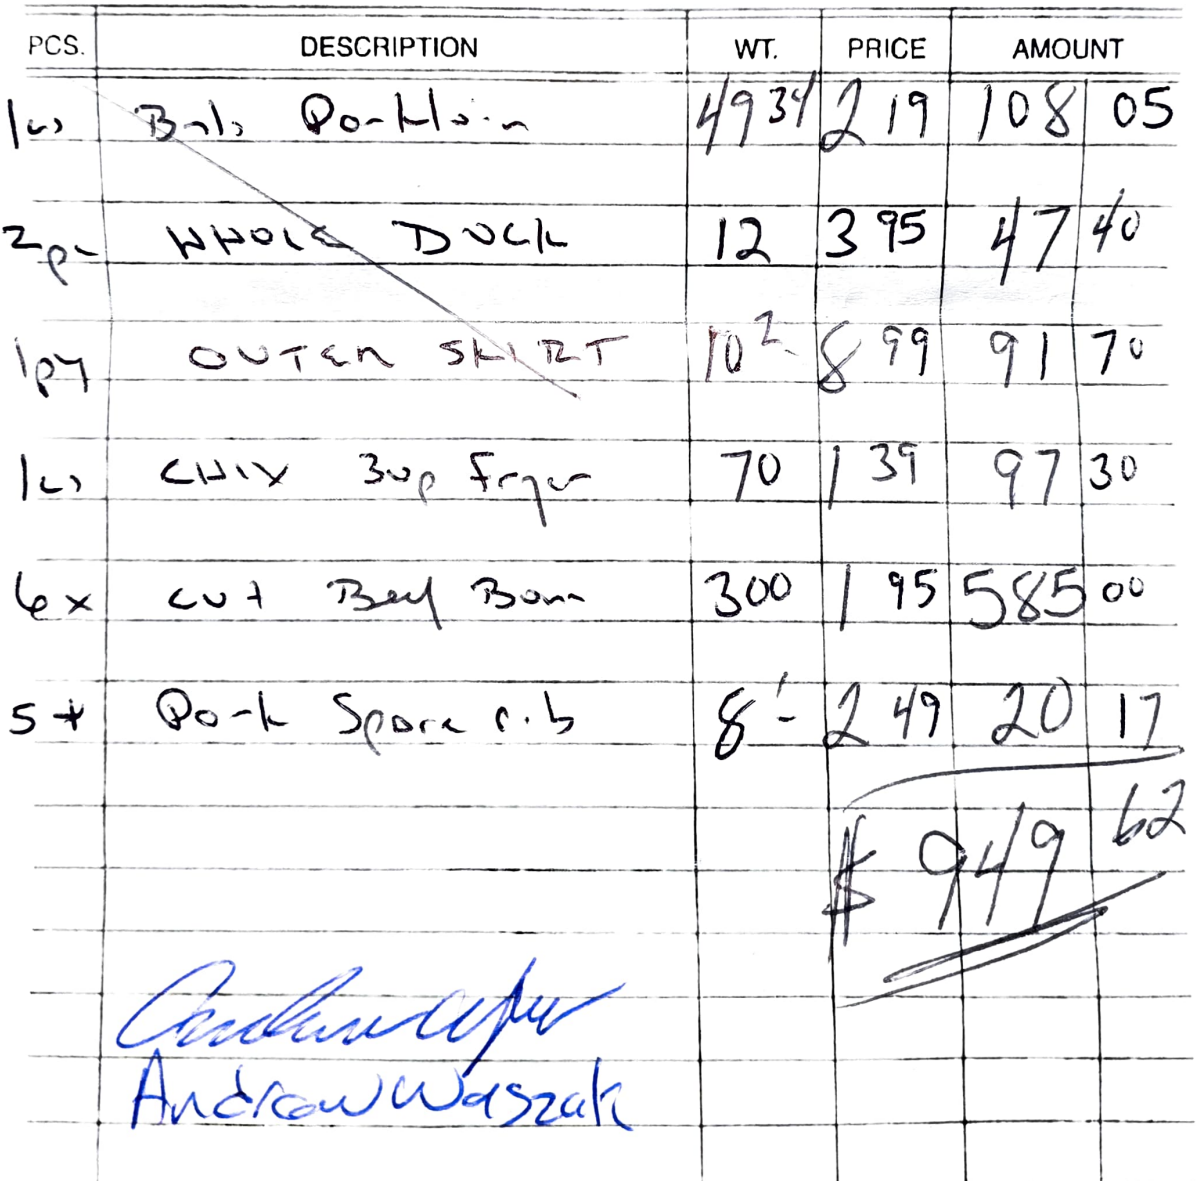 PCS. DESCRIPTION WT. PRICE AMOUNT
1cs Bnls Porkloin 49 34 2 19 108 05
2pc WHOLE DUCK 12 3 95 47 40
OUTER SKIRT 10 2 8 99 91 70
1cs CHIX 3up Fryer 70 1 39 97 30
6x cut Beef Bone 300 1 95 585 00
Pork Spare rib 8 1 2 49 20 17
$ 949 62
Andrew Waszak